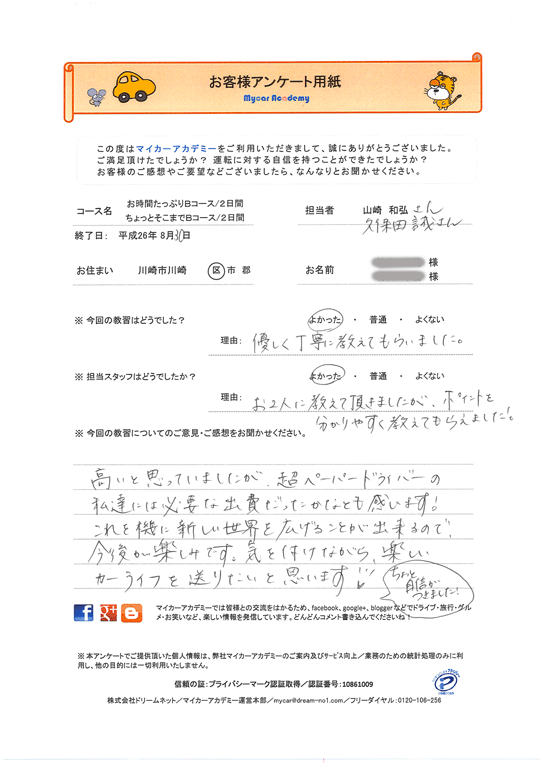 お客様アンケート用紙
Mycar Academy
この度はマイカーアカデミーをご利用いただきまして、誠にありがとうございました。
ご満足頂けたでしょうか？ 運転に対する自信を持つことができたでしょうか？
お客様のご感想やご要望などございましたら、なんなりとお聞かせください。
コース名 お時間たっぷりBコース/2日間
ちょっとそこまでBコース/2日間
担当者 山崎 和弘さん
久保田 誠さん
終了日： 平成26年 8月30日
お住まい 川崎市川崎 区 市 郡
お名前 様
様
※ 今回の教習はどうでした？ よかった ・ 普通 ・ よくない
理由： 優しく丁寧に教えてもらいました。
※ 担当スタッフはどうでしたか？ よかった ・ 普通 ・ よくない
理由： お2人に教えて頂きましたが、ポイントを
分かりやすく教えてもらえました！
※ 今回の教習についてのご意見・ご感想をお聞かせください。
高いと思っていましたが、超ペーパードライバーの
私達には必要な出費だったかなとも感います！
これを機に新しい世界を広げることが出来るので、
今後が楽しみです。気を付けながら、楽しい
カーライフを送りたいと思います！！
ちょっと
自信が
つきました！
f g+ B
マイカーアカデミーでは皆様との交流をはかるため、facebook、google+、bloggerなどでドライブ・旅行・グル
メ・お笑いなど、楽しい情報を発信しています。どんどんコメント書き込んでくださいね！
※ 本アンケートでご提供頂いた個人情報は、弊社マイカーアカデミーのご案内及びサービス向上／業務のための統計処理のみに利
用し、他の目的には一切利用いたしません。
信頼の証：プライバシーマーク認証取得／認証番号：10861009
株式会社ドリームネット／マイカーアカデミー運営本部／mycar@dream-no1.com／フリーダイヤル：0120-106-256